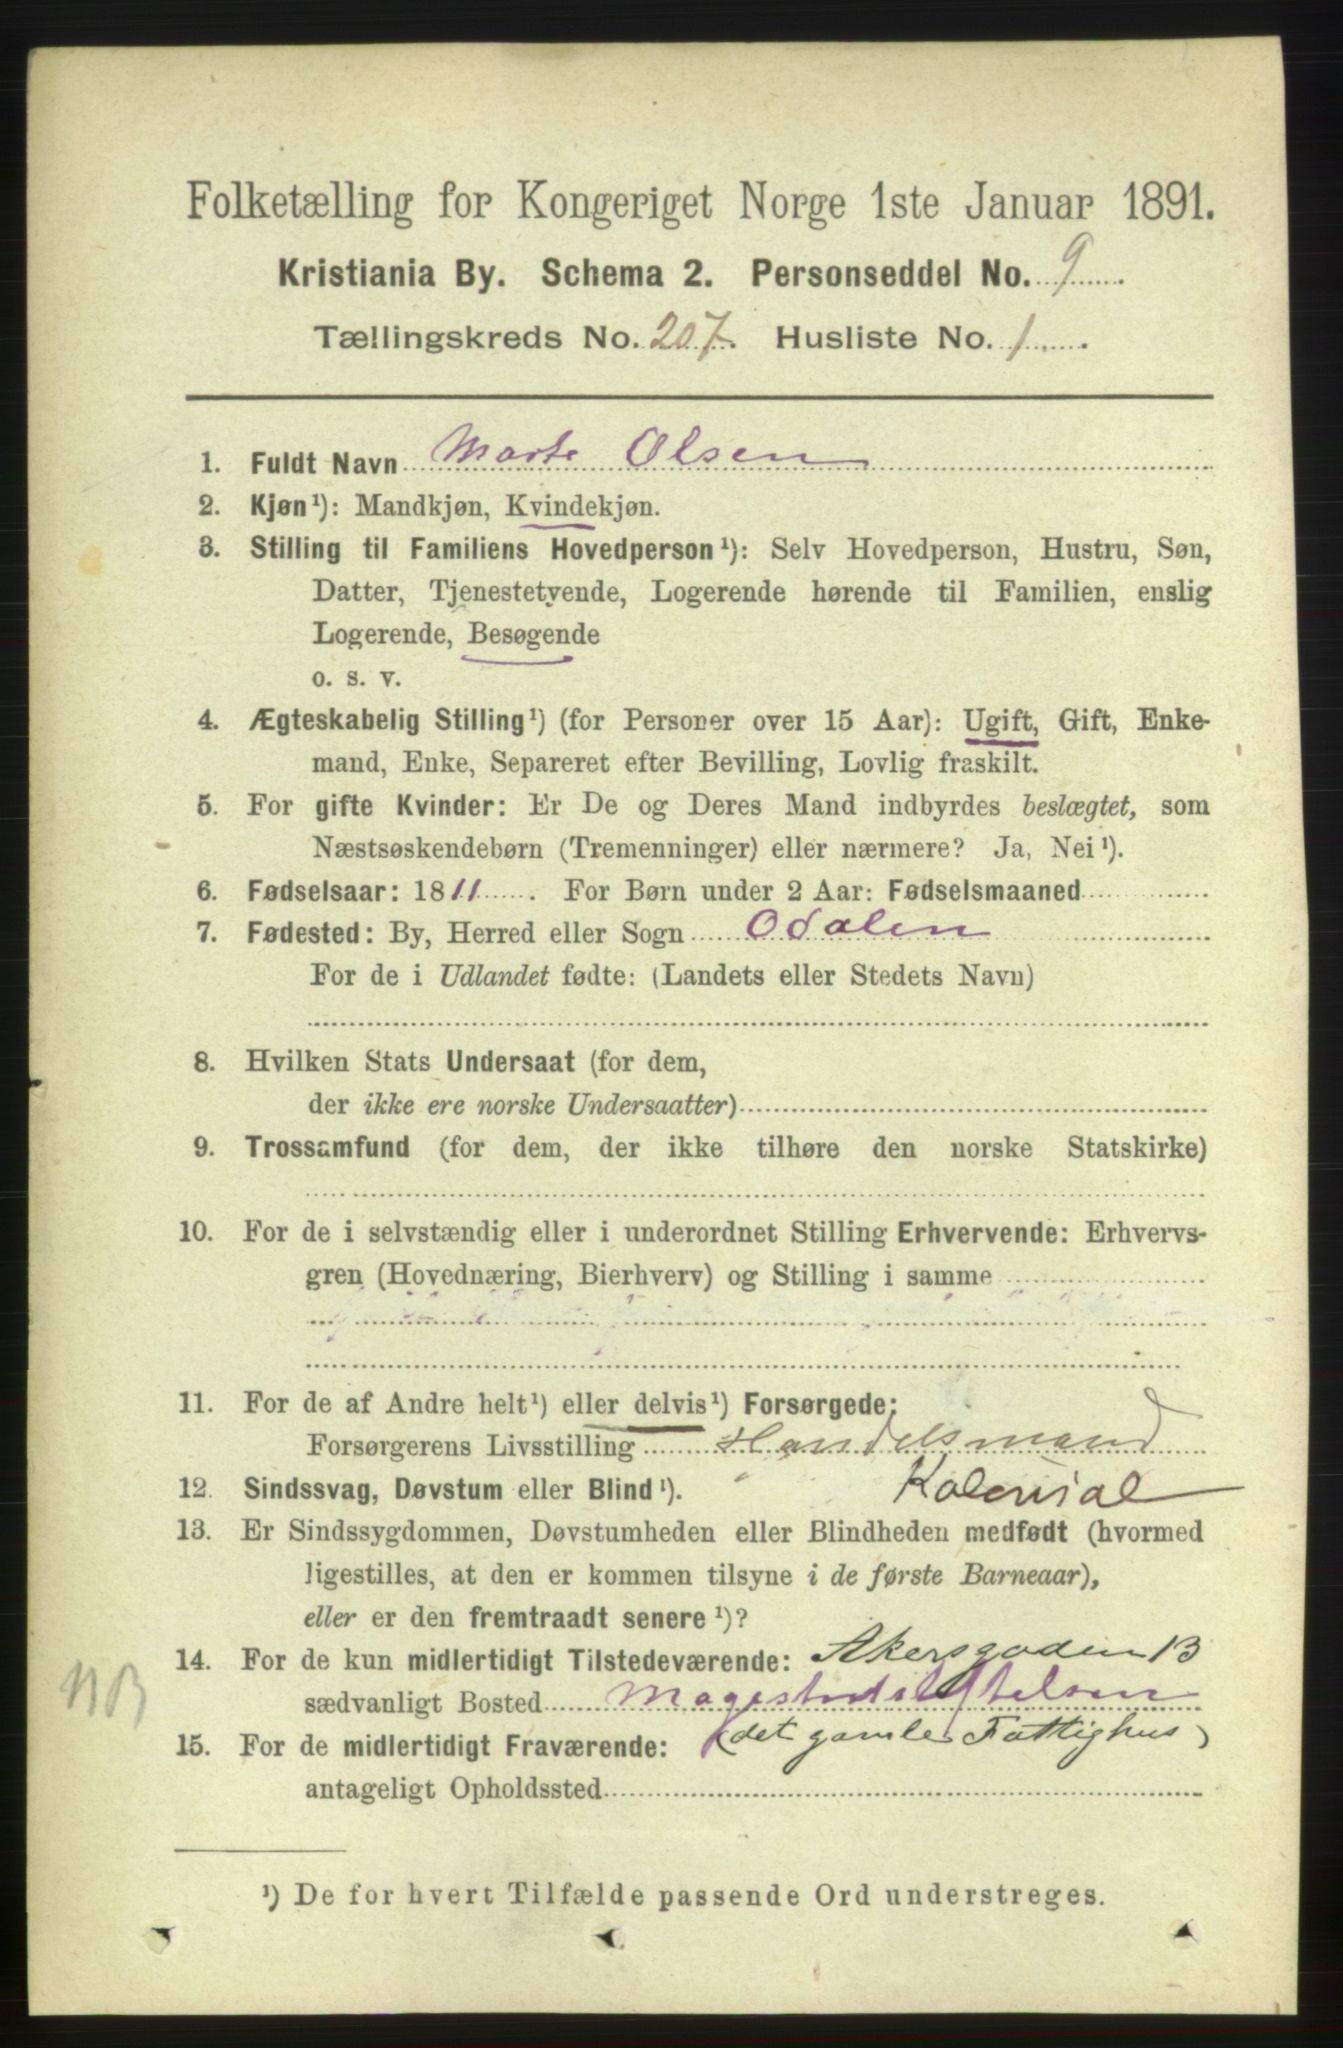 Folketælling for Kongeriget Norge 1ste Januar 1891.
Kristiania By. Schema 2. Personseddel No. 9
Tællingskreds No. 207. Husliste No. 1
1. Fuldt Navn Marte Olsen
2. Kjøn¹): Mandkjøn, Kvindekjøn.
3. Stilling til Familiens Hovedperson¹): Selv Hovedperson, Hustru, Søn,
Datter, Tjenestetyende, Logerende hørende til Familien, enslig
Logerende, Besøgende
o. s. v.
4. Ægteskabelig Stilling¹) (for Personer over 15 Aar): Ugift, Gift, Enke-
mand, Enke, Separeret efter Bevilling, Lovlig fraskilt.
5. For gifte Kvinder: Er De og Deres Mand indbyrdes beslægtet, som
Næstsøskendebørn (Tremenninger) eller nærmere? Ja, Nei¹).
6. Fødselsaar: 1811. For Børn under 2 Aar: Fødselsmaaned
7. Fødested: By, Herred eller Sogn Odalen
For de i Udlandet fødte: (Landets eller Stedets Navn)
8. Hvilken Stats Undersaat (for dem,
der ikke ere norske Undersaatter)
9. Trossamfund (for dem, der ikke tilhøre den norske Statskirke)
10. For de i selvstændig eller i underordnet Stilling Erhvervende: Erhvervs-
gren (Hovednæring, Bierhverv) og Stilling i samme
11. For de af Andre helt¹) eller delvis¹) Forsørgede:
Forsørgerens Livsstilling Handelsmand
12. Sindssvag, Døvstum eller Blind¹). Kolonial
13. Er Sindssygdommen, Døvstumheden eller Blindheden medfødt (hvormed
ligestilles, at den er kommen tilsyne i de første Barneaar),
eller er den fremtraadt senere¹)?
14. For de kun midlertidigt Tilstedeværende: Akersgaden 13
sædvanligt Bosted
15. For de midlertidigt Fraværende: (det gamle Fattighus)
antageligt Opholdssted
NB
¹) De for hvert Tilfælde passende Ord understreges.